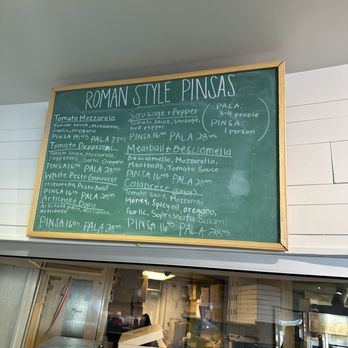 ROMAN STYLE PINSAS
Tomato Mozzarella
Tomato sauce, Mozzarella,
Garlic, oregano
PINSA 15.45 PALA 27.45
Tomato Pepperoni
Tomato Sauce, Mozzarella,
Pepperoni, Garlic, Oregano
PINSA 16.45 PALA 28.45
White Pesto Genovese
Mozzarella, Pesto Basil
PINSA 15.45 PALA
Artichoke
Artichoke
PINSA 16.45 PALA
Sausage & Pepper
Tomato Sauce, Sausage,
bell pepper
PINSA 16.45 PALA 28.45
Meatball & Besciamella
Besciamella, Mozzarella,
Meatballs, Tomato Sauce
PINSA 16.45 PALA 28.45
Calabrese (SPICY)
Tomato Sauce, Mozzarella
Honey, Spicy oil, oregano,
Garlic, Sopressata Salami
PINSA 16.45 PALA 28.45
PALA:
3-4 people
PINSA:
1 person